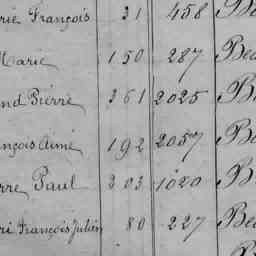 rie François 31 458
Marie 150 287 Bea
nd Pierre 361 2025
nçois Aimé 192 2057
rre Paul 303 1020
ri François Julien 80 227 Bea